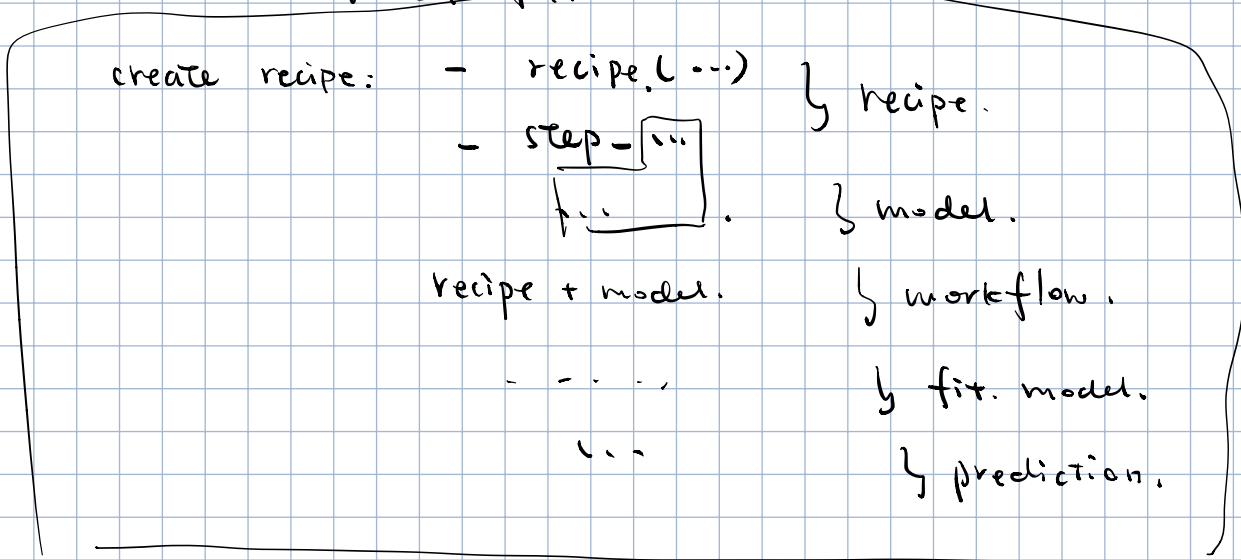 create recipe: - recipe.(...) } recipe.
- step_...
... } model.
recipe + model. } workflow.
- - . . , } fit. model.
... } prediction.